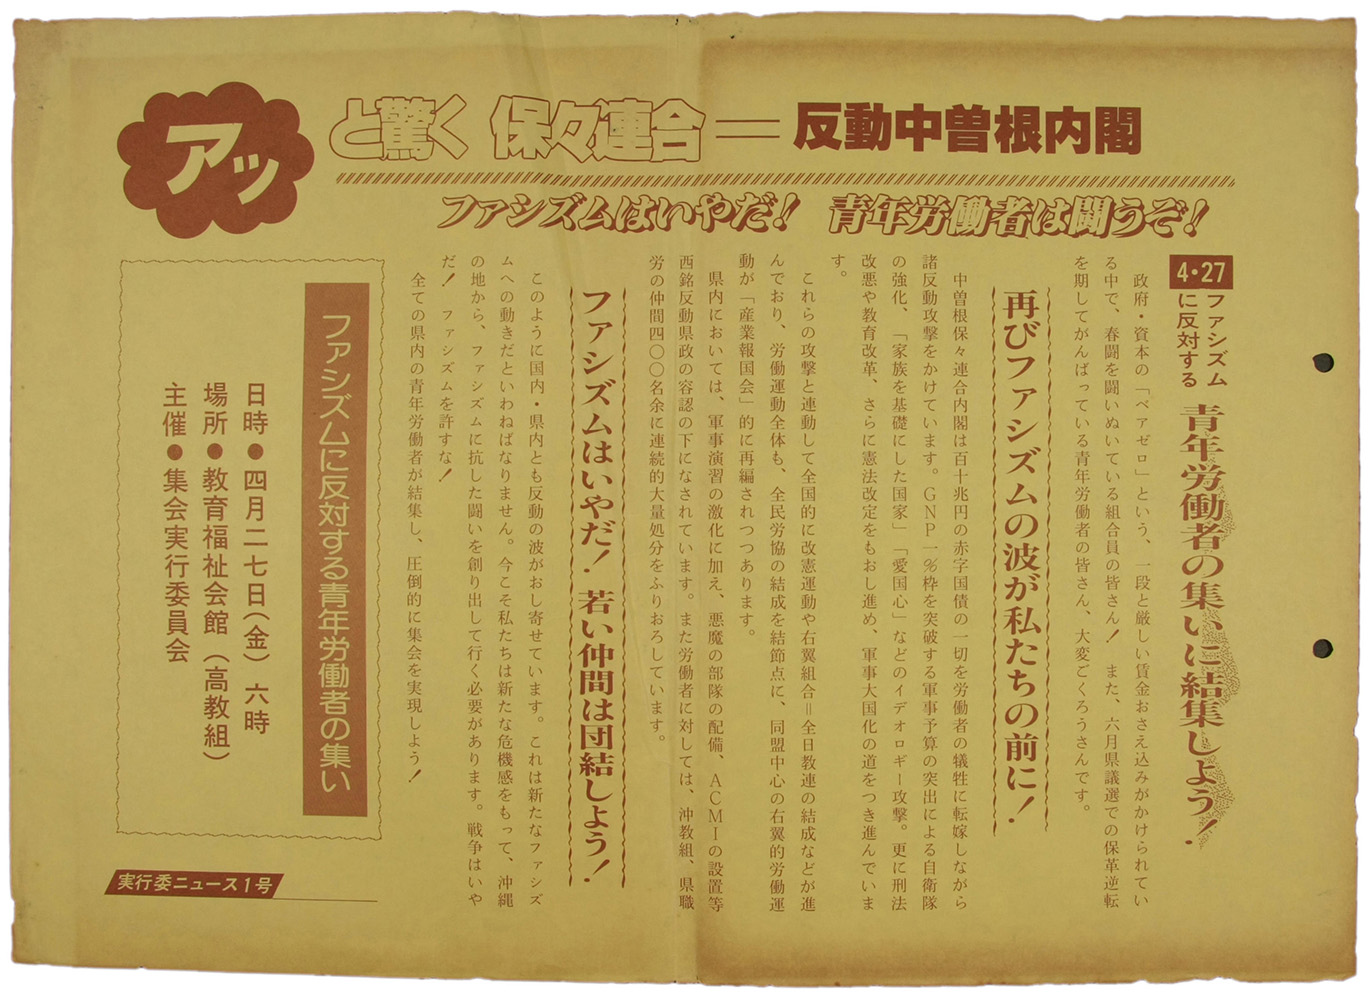 アッと驚く 保々連合＝反動中曽根内閣
ファシズムはいやだ！ 青年労働者は闘うぞ！
4・27ファシズムに反対する 青年労働者の集いに結集しよう！
政府・資本の「ベアゼロ」という、一段と厳しい賃金おさえ込みがかけられてい
る中で、春闘を闘いぬいている組合員の皆さん！ また、六月県議選での保革逆転
を期してがんばっている青年労働者の皆さん、大変ごくろうさんです。
再びファシズムの波が私たちの前に！
中曽根保々連合内閣は百十兆円の赤字国債の一切を労働者の犠牲に転嫁しながら
諸反動攻撃をかけています。GNP一％枠を突破する軍事予算の突出による自衛隊
の強化、「家族を基礎にした国家」「愛国心」などのイデオロギー攻撃。更に刑法
改悪や教育改革、さらに憲法改定をもおし進め、軍事大国化の道をつき進んでいま
す。
これらの攻撃と連動して全国的に改憲運動や右翼組合＝全日教連の結成などが進
んでおり、労働運動全体も、全民労協の結成を結節点に、同盟中心の右翼的労働運
動が「産業報国会」的に再編されつつあります。
県内においては、軍事演習の激化に加え、悪魔の部隊の配備、ACMIの設置等
西銘反動県政の容認の下になされています。また労働者に対しては、沖教組、県職
労の仲間四〇〇名余に連続的大量処分をふりおろしています。
ファシズムはいやだ！ 若い仲間は団結しよう！
このように国内・県内とも反動の波がおし寄せています。これは新たなファシズ
ムへの動きだといわねばなりません。今こそ私たちは新たな危機感をもって、沖縄
の地から、ファシズムに抗した闘いを創り出して行く必要があります。戦争はいや
だ！ ファシズムを許すな！
全ての県内の青年労働者が結集し、圧倒的に集会を実現しよう！
ファシズムに反対する青年労働者の集い
日時●四月二七日（金）六時
場所●教育福祉会館（高教組）
主催●集会実行委員会
実行委ニュース1号